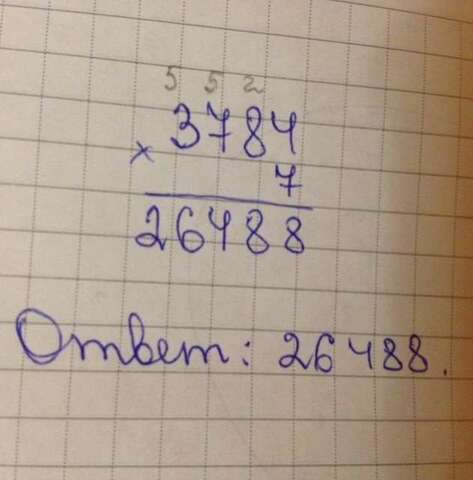 5 5 2
3784
×
7
26488
Ответ: 26488.